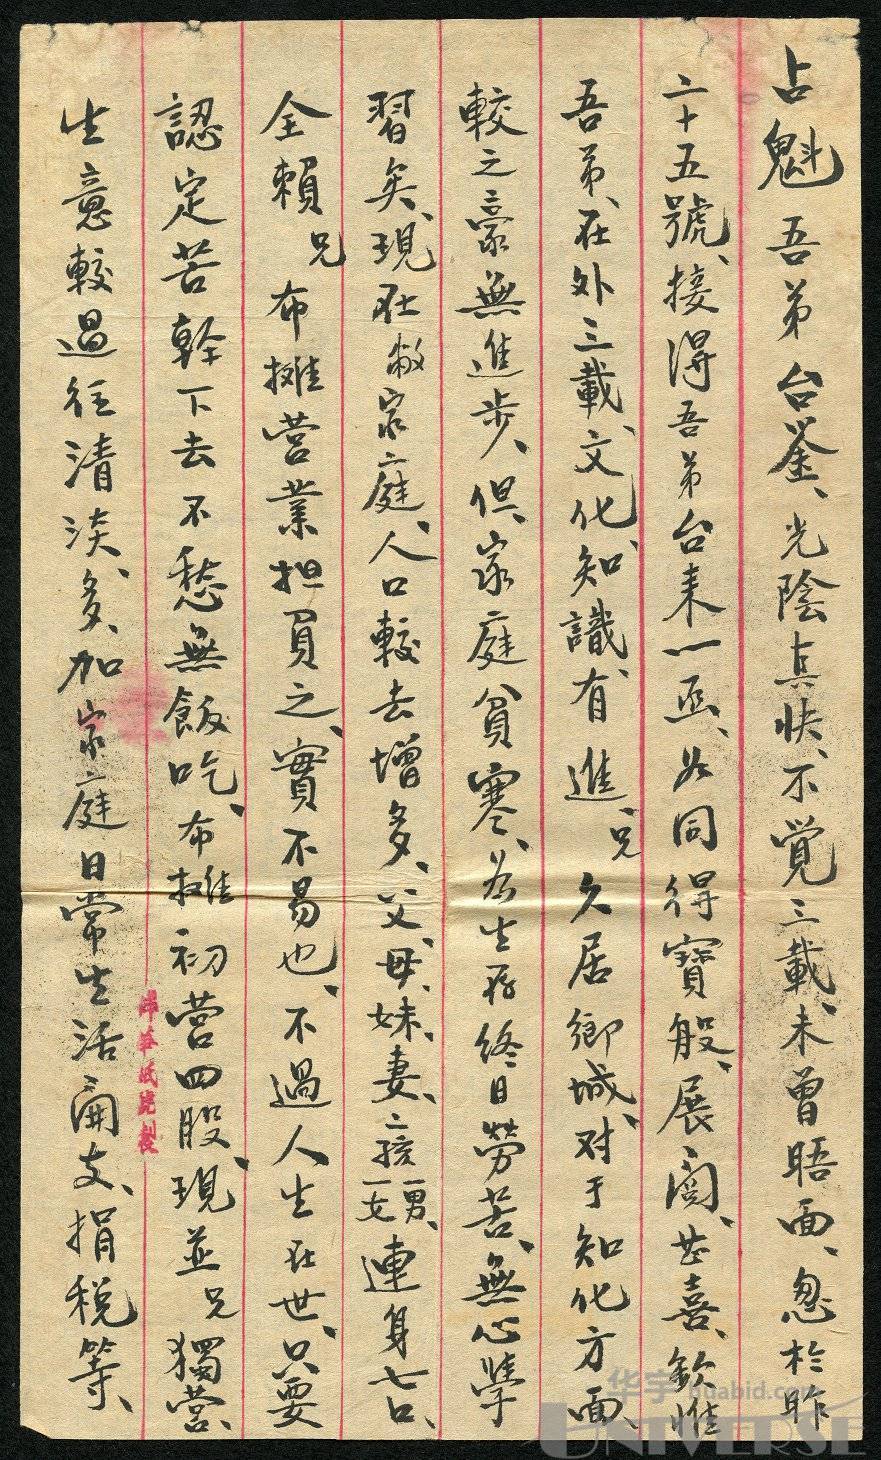 占魁 吾弟台鉴、光陰真快、不覺三載、未曾晤面、忽於昨
二十五號、接得吾弟台來一函、如同得寶般、展閱、甚喜、欽惟
吾弟、在外三載、文化知識、有進、兄久居鄉城、对于知化方面、
較之毫無進步、但、家庭貧寒、為生存終日勞苦、無心學
習矣、現在敝家庭、人口較去增多、父、母、妹、妻、二孩一男一女、連身七口、
全賴兄布攤营業担負之、實不易也、不過人生在世、只要
認定苦幹下去不愁無飯吃、布攤初营四股、現並兄獨营、
生意較過往清淡、多、加家庭日常生活開支、捐税等、
華紙號製
华宇 huabid.com
UNIVERSE